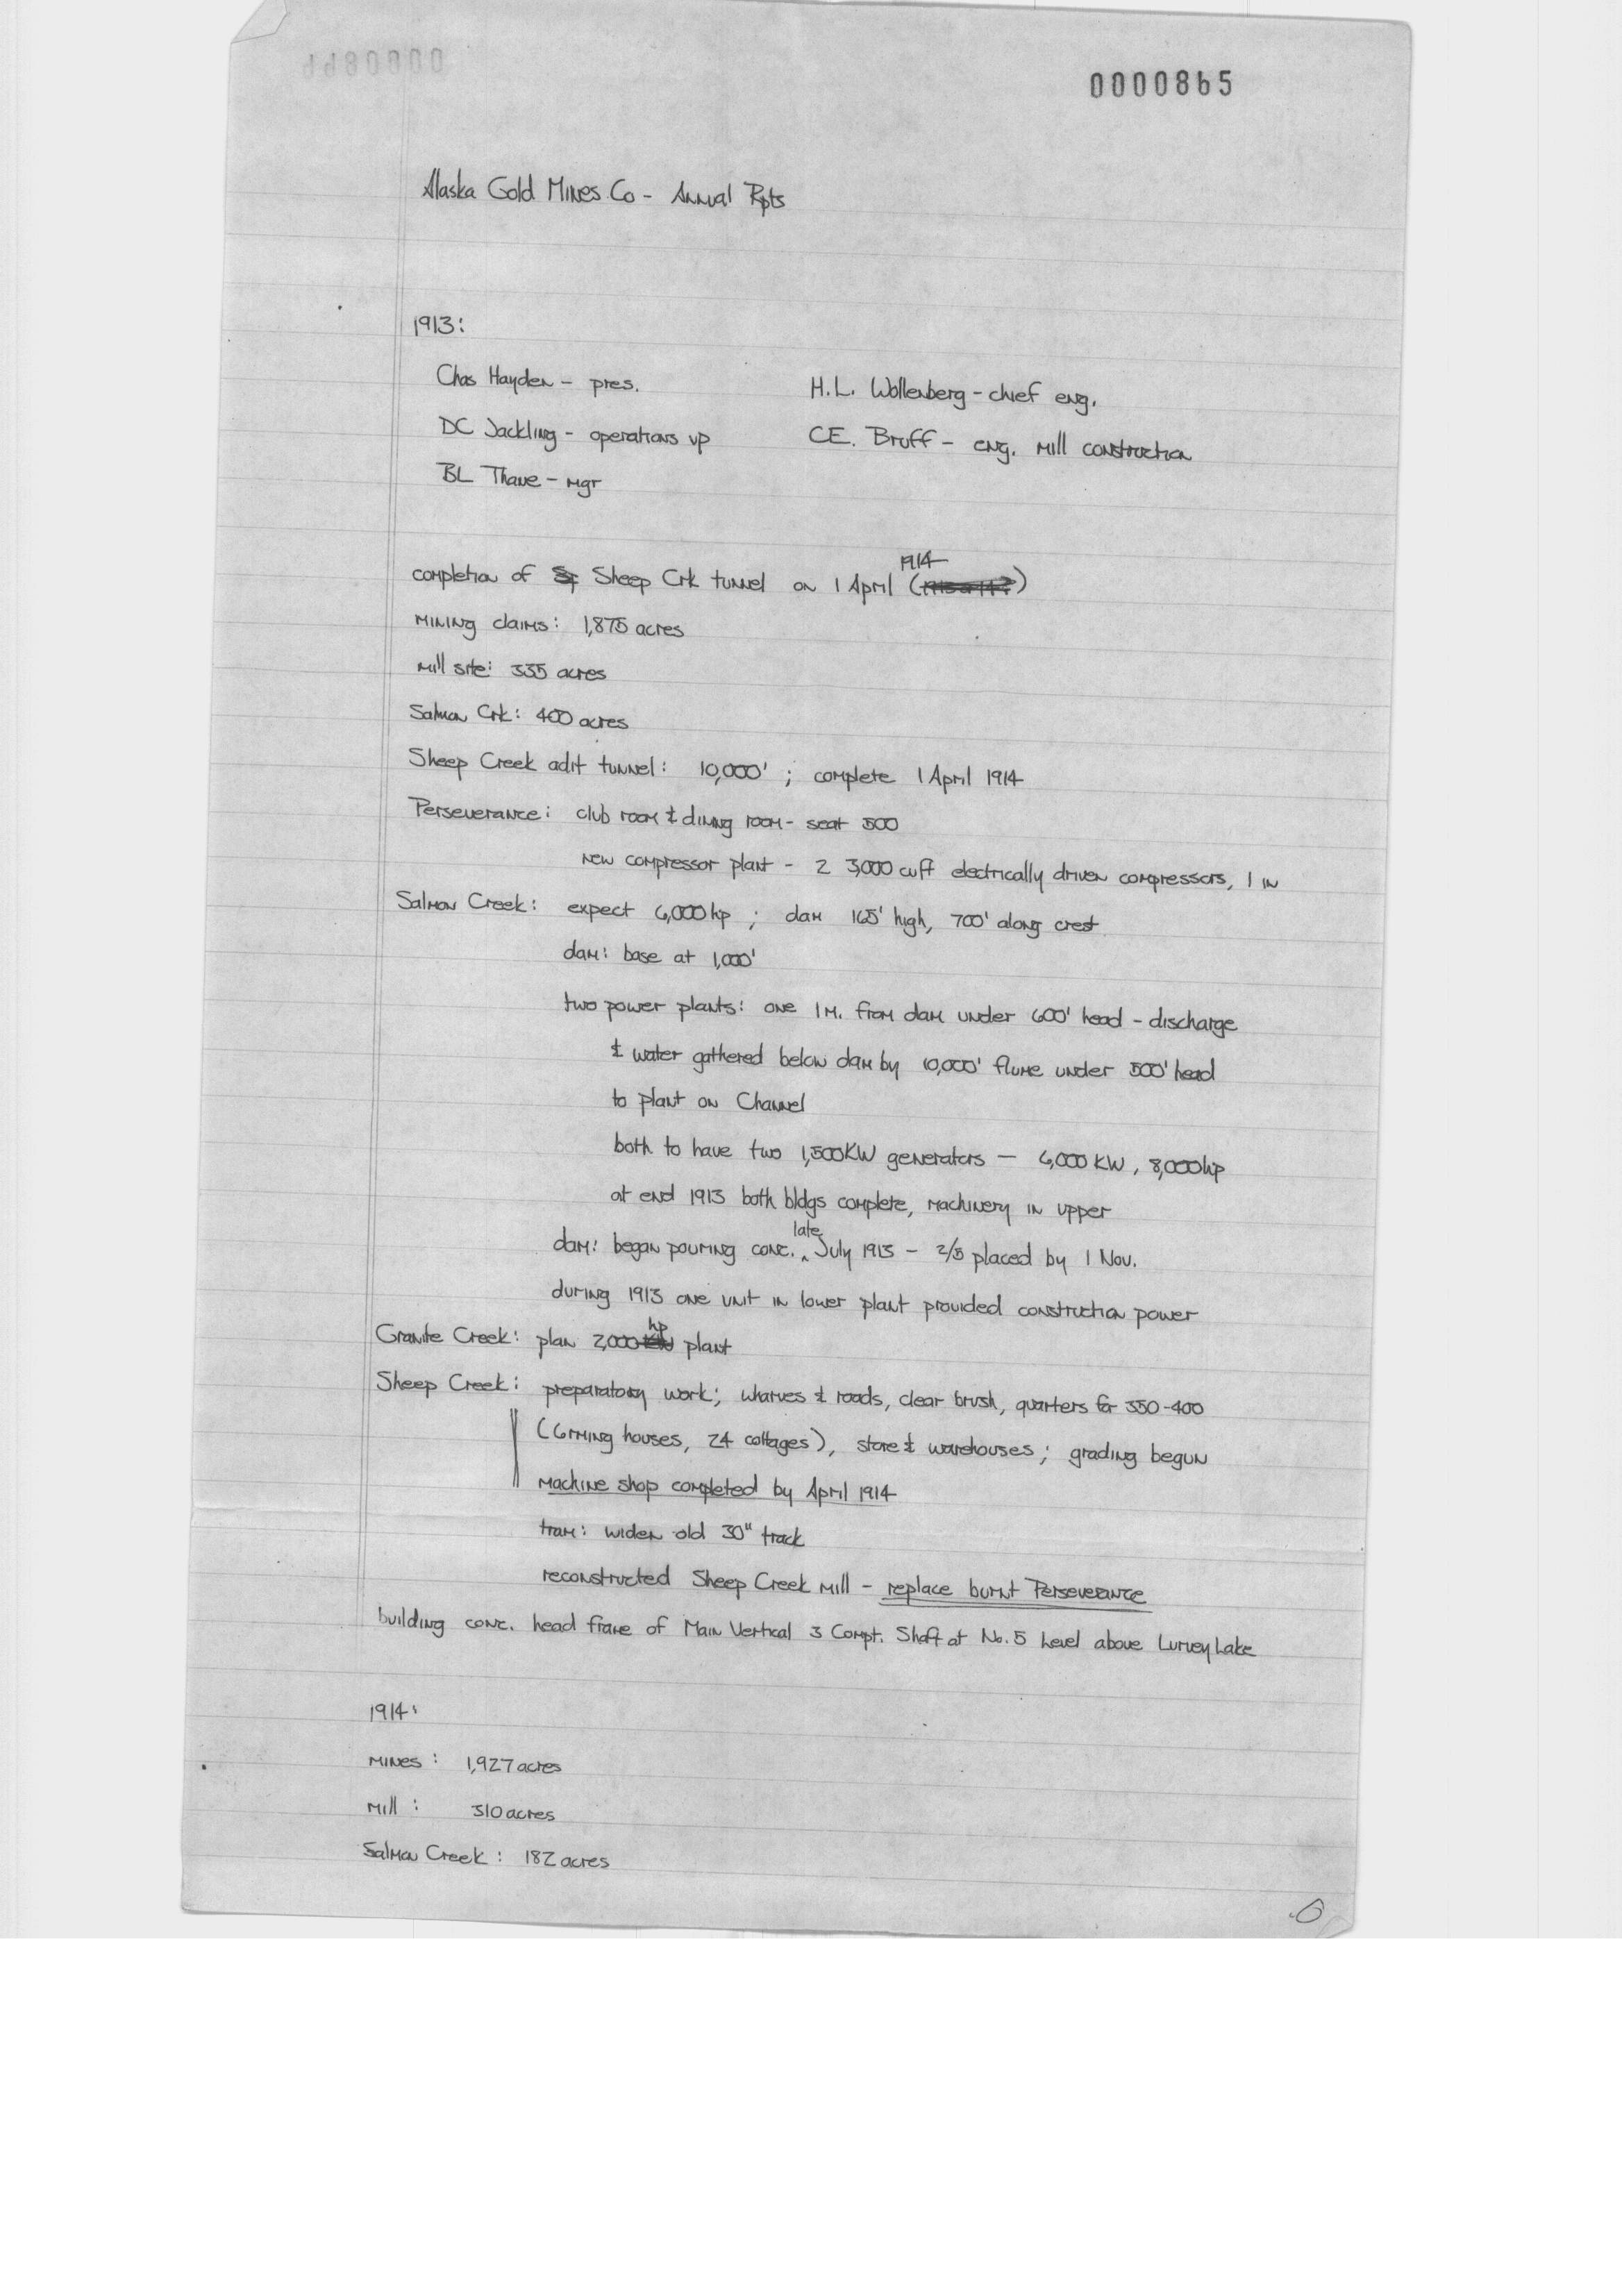 0000865
Alaska Gold Mines Co - Annual Rpts
1913:
Chas Hayden - pres.
H.L. Wollenberg - chief eng.
DC Jackling - operations vp
C.E. Bruff - eng. mill construction
BL Thane - mgr
1914
completion of Sheep Crk tunnel on 1 April ( )
mining claims: 1,875 acres
mill site: 335 acres
Salmon Crk: 400 acres
Sheep Creek adit tunnel: 10,000' ; complete 1 April 1914
Perseverance: club room & dining room - seat 500
new compressor plant - 2 3,000 cuft electrically driven compressors, 1 in
Salmon Creek: expect 6,000 hp ; dam 165' high, 700' along crest
dam: base at 1,000'
two power plants: one 1 m. from dam under 600' head - discharge
& water gathered below dam by 10,000' flume under 500' head
to plant on Channel
both to have two 1,500 KW generators — 6,000 KW, 8,000 hp
at end 1913 both bldgs complete, machinery in upper
late
dam: began pouring conc. ^ July 1913 - 2/3 placed by 1 Nov.
during 1913 one unit in lower plant provided construction power
hp
Granite Creek: plan 2,000 KW plant
Sheep Creek: preparatory work; wharves & roads, clear brush, quarters for 350-400
houses, 24 cottages), store & warehouses; grading begun
machine shop completed by April 1914
tram: widen old 30" track
reconstructed Sheep Creek mill - replace burnt Perseverance
building conc. head frame of Main Vertical 3 Compt. Shaft at No. 5 Level above Lurvey Lake
1914:
mines: 1,927 acres
mill: 310 acres
Salmon Creek: 182 acres